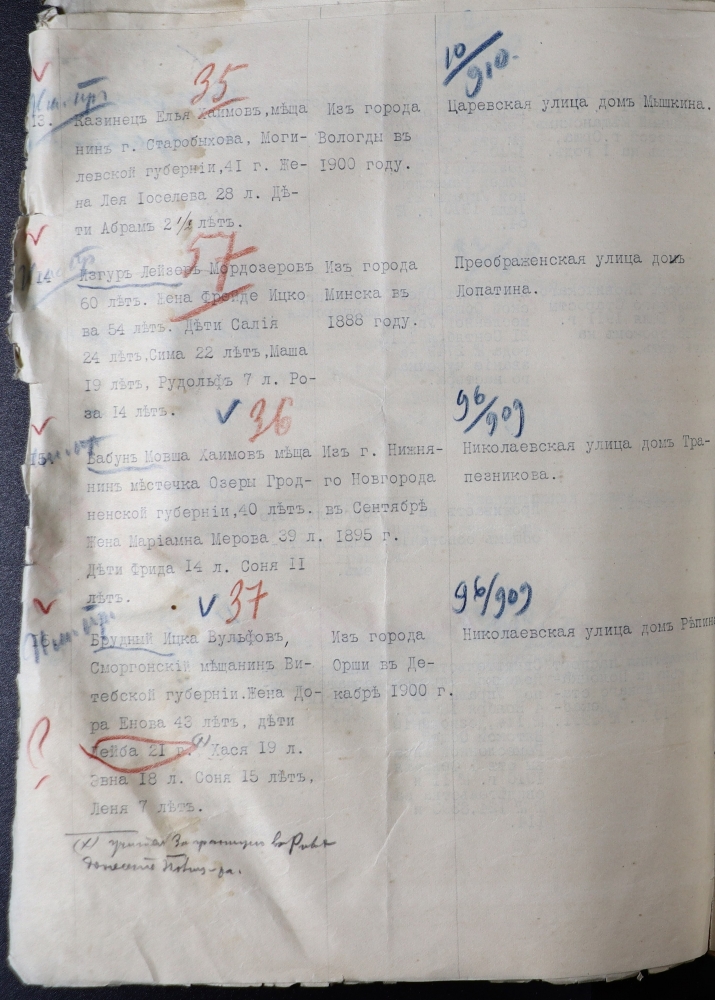 10/910.
35
13. Казинецъ Елья Хаимовъ, мѣща Изъ города Царевская улица домъ Мышкина.
нинъ г. Старобыхова, Моги- Вологды въ
левской губерніи, 41 г. Же- 1900 году.
на Лея Іоселева 28 л. Дѣ-
ти Абрамъ 2 1/2 лѣтъ.
57
14 Изгуръ Лейзеръ Мордозеровъ Изъ города Преображенская улица домъ
60 лѣтъ. Жена Фрейде Ицко Минска въ Лопатина.
ва 54 лѣтъ. Дѣти Салія 1888 году.
24 лѣтъ, Сима 22 лѣтъ, Маша
19 лѣтъ, Рудольфъ 7 л. Ро-
за 14 лѣтъ.
36 96/909
15 Бабунъ Мовша Хаимовъ мѣща Изъ г. Нижня- Николаевская улица домъ Тра-
нинъ мѣстечка Озеры Грод- го Новгорода пезникова.
ненской губерніи, 40 лѣтъ. въ Сентябрѣ
Жена Маріамна Мерова 39 л. 1895 г.
Дѣти Фрида 14 л. Соня 11
лѣтъ.
37 96/909
Брудный Ицка Вульфовъ, Изъ города Николаевская улица домъ Рѣпина
Сморгонскій мѣщанинъ Ви- Орши въ Де-
тебской губерніи. Жена До- кабрѣ 1900 г.
ра Енова 43 лѣтъ, дѣти
Лейба 21 г. Хася 19 л.
Эвна 18 л. Соня 15 лѣтъ,
Леня 7 лѣтъ.
(х)